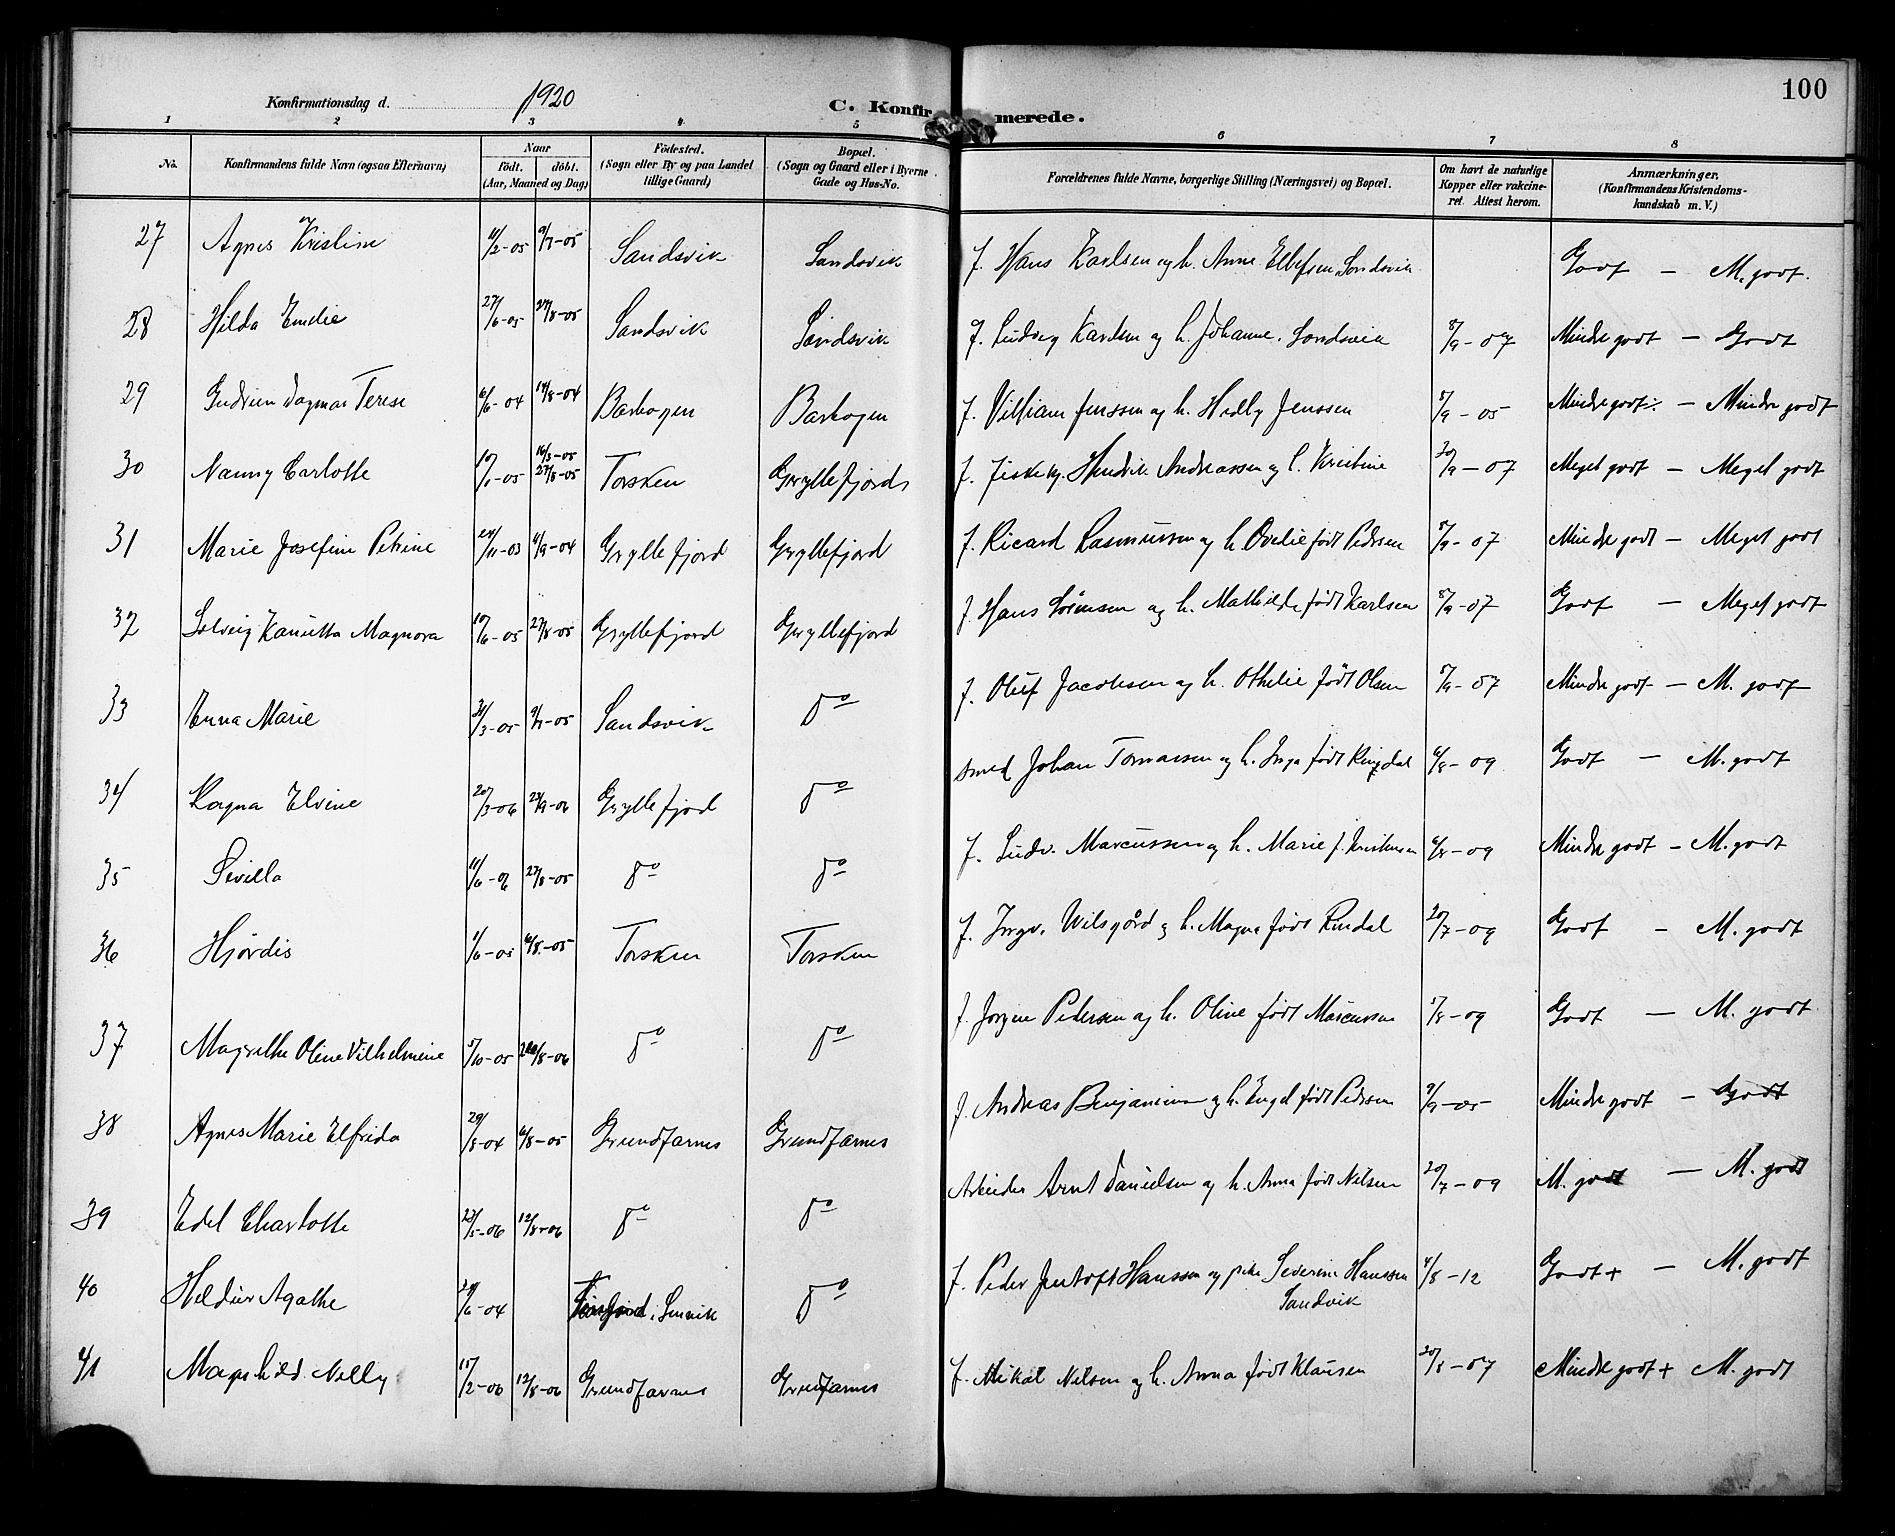 100
Konfirmationsdag d. 1920
C. Konfirmerede.
1 2 3 4 5 6 7 8
No.
Konfirmandens fulde Navn (ogsaa Efternavn)
Naar født. døbt. (Aar, Maaned og Dag)
Fødested. (Sogn eller By og paa Landet tillige Gaard)
Bopæl. (Sogn og Gaard eller i Byerne Gade og Hus-No.
Forældrenes fulde Navne, borgerlige Stilling (Næringsvei) og Bopæl.
Om havt de naturlige Kopper eller vakcineret. Attest herom.
Anmærkninger. (Konfirmandens Kristendomskundskab m. V.)
27 Agnes Kristine 4/2-05 9/7-05 Sandsvik Sandsvik f. Hans Karlsen og h. Anne Sandsvik Godt — M. godt.
28 Hilda Emelie 27/6-05 27/8-05 Sandsvik Sandsvik f. Ludvig Karlsen og h. Johanne. Sandsvik 8/9-07 Mindre godt — Godt
29 Gudrun Dagmar Terese 6/6-04 14/8-04 Barhogen Barhogen f. Villiam Jenssen og h. Hedly Jenssen 8/9-05 Mindre godt — Mindre godt
30 Nanny Carlotte 10/1-05 16/3-05 27/8-05 Torsken Gryllefjord f. Hendrik Andreassen og h. Kristine 20/9-07 Meget godt — Meget godt
31 Marie Josefine Petrine 24/11-03 4/9-04 Gryllefjord Gryllefjord f. Ricard Rasmussen og h. Ovelie født Pedersen 8/9-07 Mindre godt — Meget godt
32 Solveig Magnora 10/6-05 27/8-05 Gryllefjord Gryllefjord f. Hans Sørensen og h. Mathilde født Karlsen 8/9-07 Godt — Meget godt
33 Anna Marie 31/3-05 9/7-05 Sandsvik do f. Oluf Jacobsen og h. Othelie født Olsen 8/9-07 Mindre godt — M. godt
34 Ragna Elvine 20/3-06 23/9-06 Gryllefjord do smed Johan Tomassen og h. Inga født Ringdal 6/8-09 Godt — M. godt
35 Sivilla 11/6-06 27/8-05 do do f. Ludv. Marcussen og h. Marie f. Kristensen 6/8-09 Mindre godt — M. godt
36 Hjördis 1/6-05 6/8-05 Torsken Torsken f. Ingv. Wilsgård og h. Magna født Rindal 20/7-09 Godt — M. godt
37 Magrethe Oline Vilhelmine 5/10-05 /8-06 do do f. Jørgen Pedersen og h. Oline født Marcussen /8-09 Godt — M. godt
38 Agnes Marie Elfrida 29/8-04 6/8-05 Grundfarnes Grundfarnes f. Andreas Benjaminsen og h. Engel født Pedersen 9/9-05 Mindre godt — Godt
39 Edel Charlotte 23/5-06 12/8-06 do do Arbeider Arnt Danielsen og h. Anna født Nilsen 20/7-09 M. godt — M. godt
40 Heldur Agathe 24/6-04 do f. Peder Jentoft Hanssen og pike Severine Hanssen Sandvik 4/8-12 Godt + — M. godt
41 Magnhild Nelly 15/2-06 12/8-06 Grundfarnes Grundfarnes f. Mikal Nilsen og h. Anna født Klausen 20/8-07 Mindre godt + M. godt